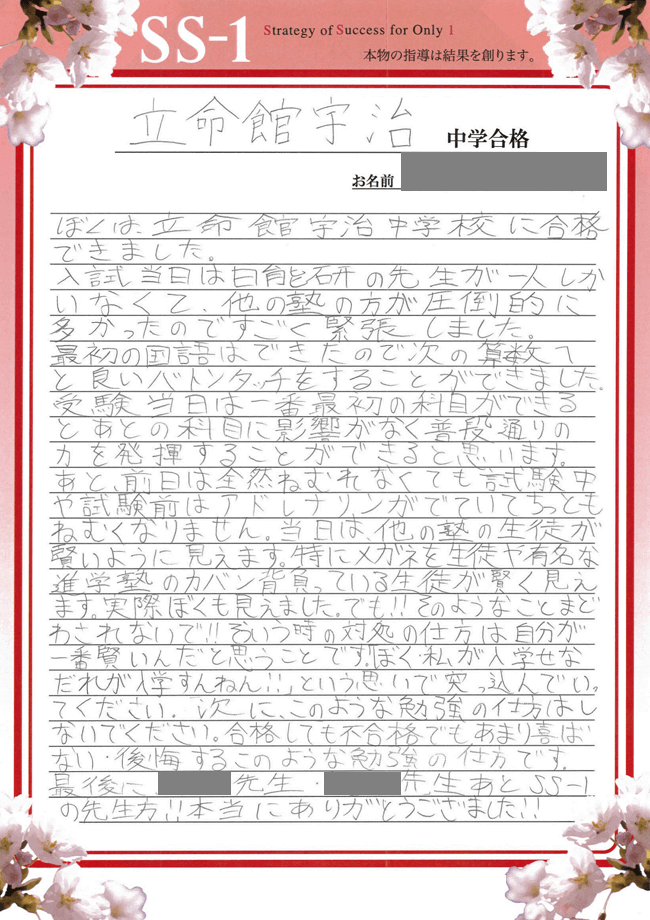 SS-1
Strategy of Success for Only 1
本物の指導は結果を創ります。
立命館宇治 中学合格
お名前
ぼくは、立命館宇治中学校に合格
できました。
入試当日は日能研の先生が一人しか
いなくて、他の塾の方が圧倒的に
多かったのですごく緊張しました。
最初の国語はできたので次の算数へ
と良いバトンタッチをすることができました。
受験当日は一番最初の科目ができる
とあとの科目に影響がなく普段通りの
力を発揮することができると思います。
あと、前日は全然ねむれなくても試験中
や試験前はアドレナリンがでていてちっとも
ねむくなりません。当日は、他の塾の生徒が
賢いように見えます。特にメガネを生徒や有名な
進学塾のカバン背負っている生徒が賢く見え
ます。実際ぼくも見えました。でも!!そのようなことまど
わされないで!!そういう時の対処の仕方は自分が
一番賢いんだと思うことです。ぼく・私が入学せな
だれが入学すんねん!!」という思いで突っ込んでいっ
てください。次に、このような勉強の仕方はし
ないでください。合格しても不合格でもあまり喜ば
ない・後悔するこのような勉強の仕方です。
最後に 先生・ 先生あとSS-1
の先生方!!本当にありがとうございました!!